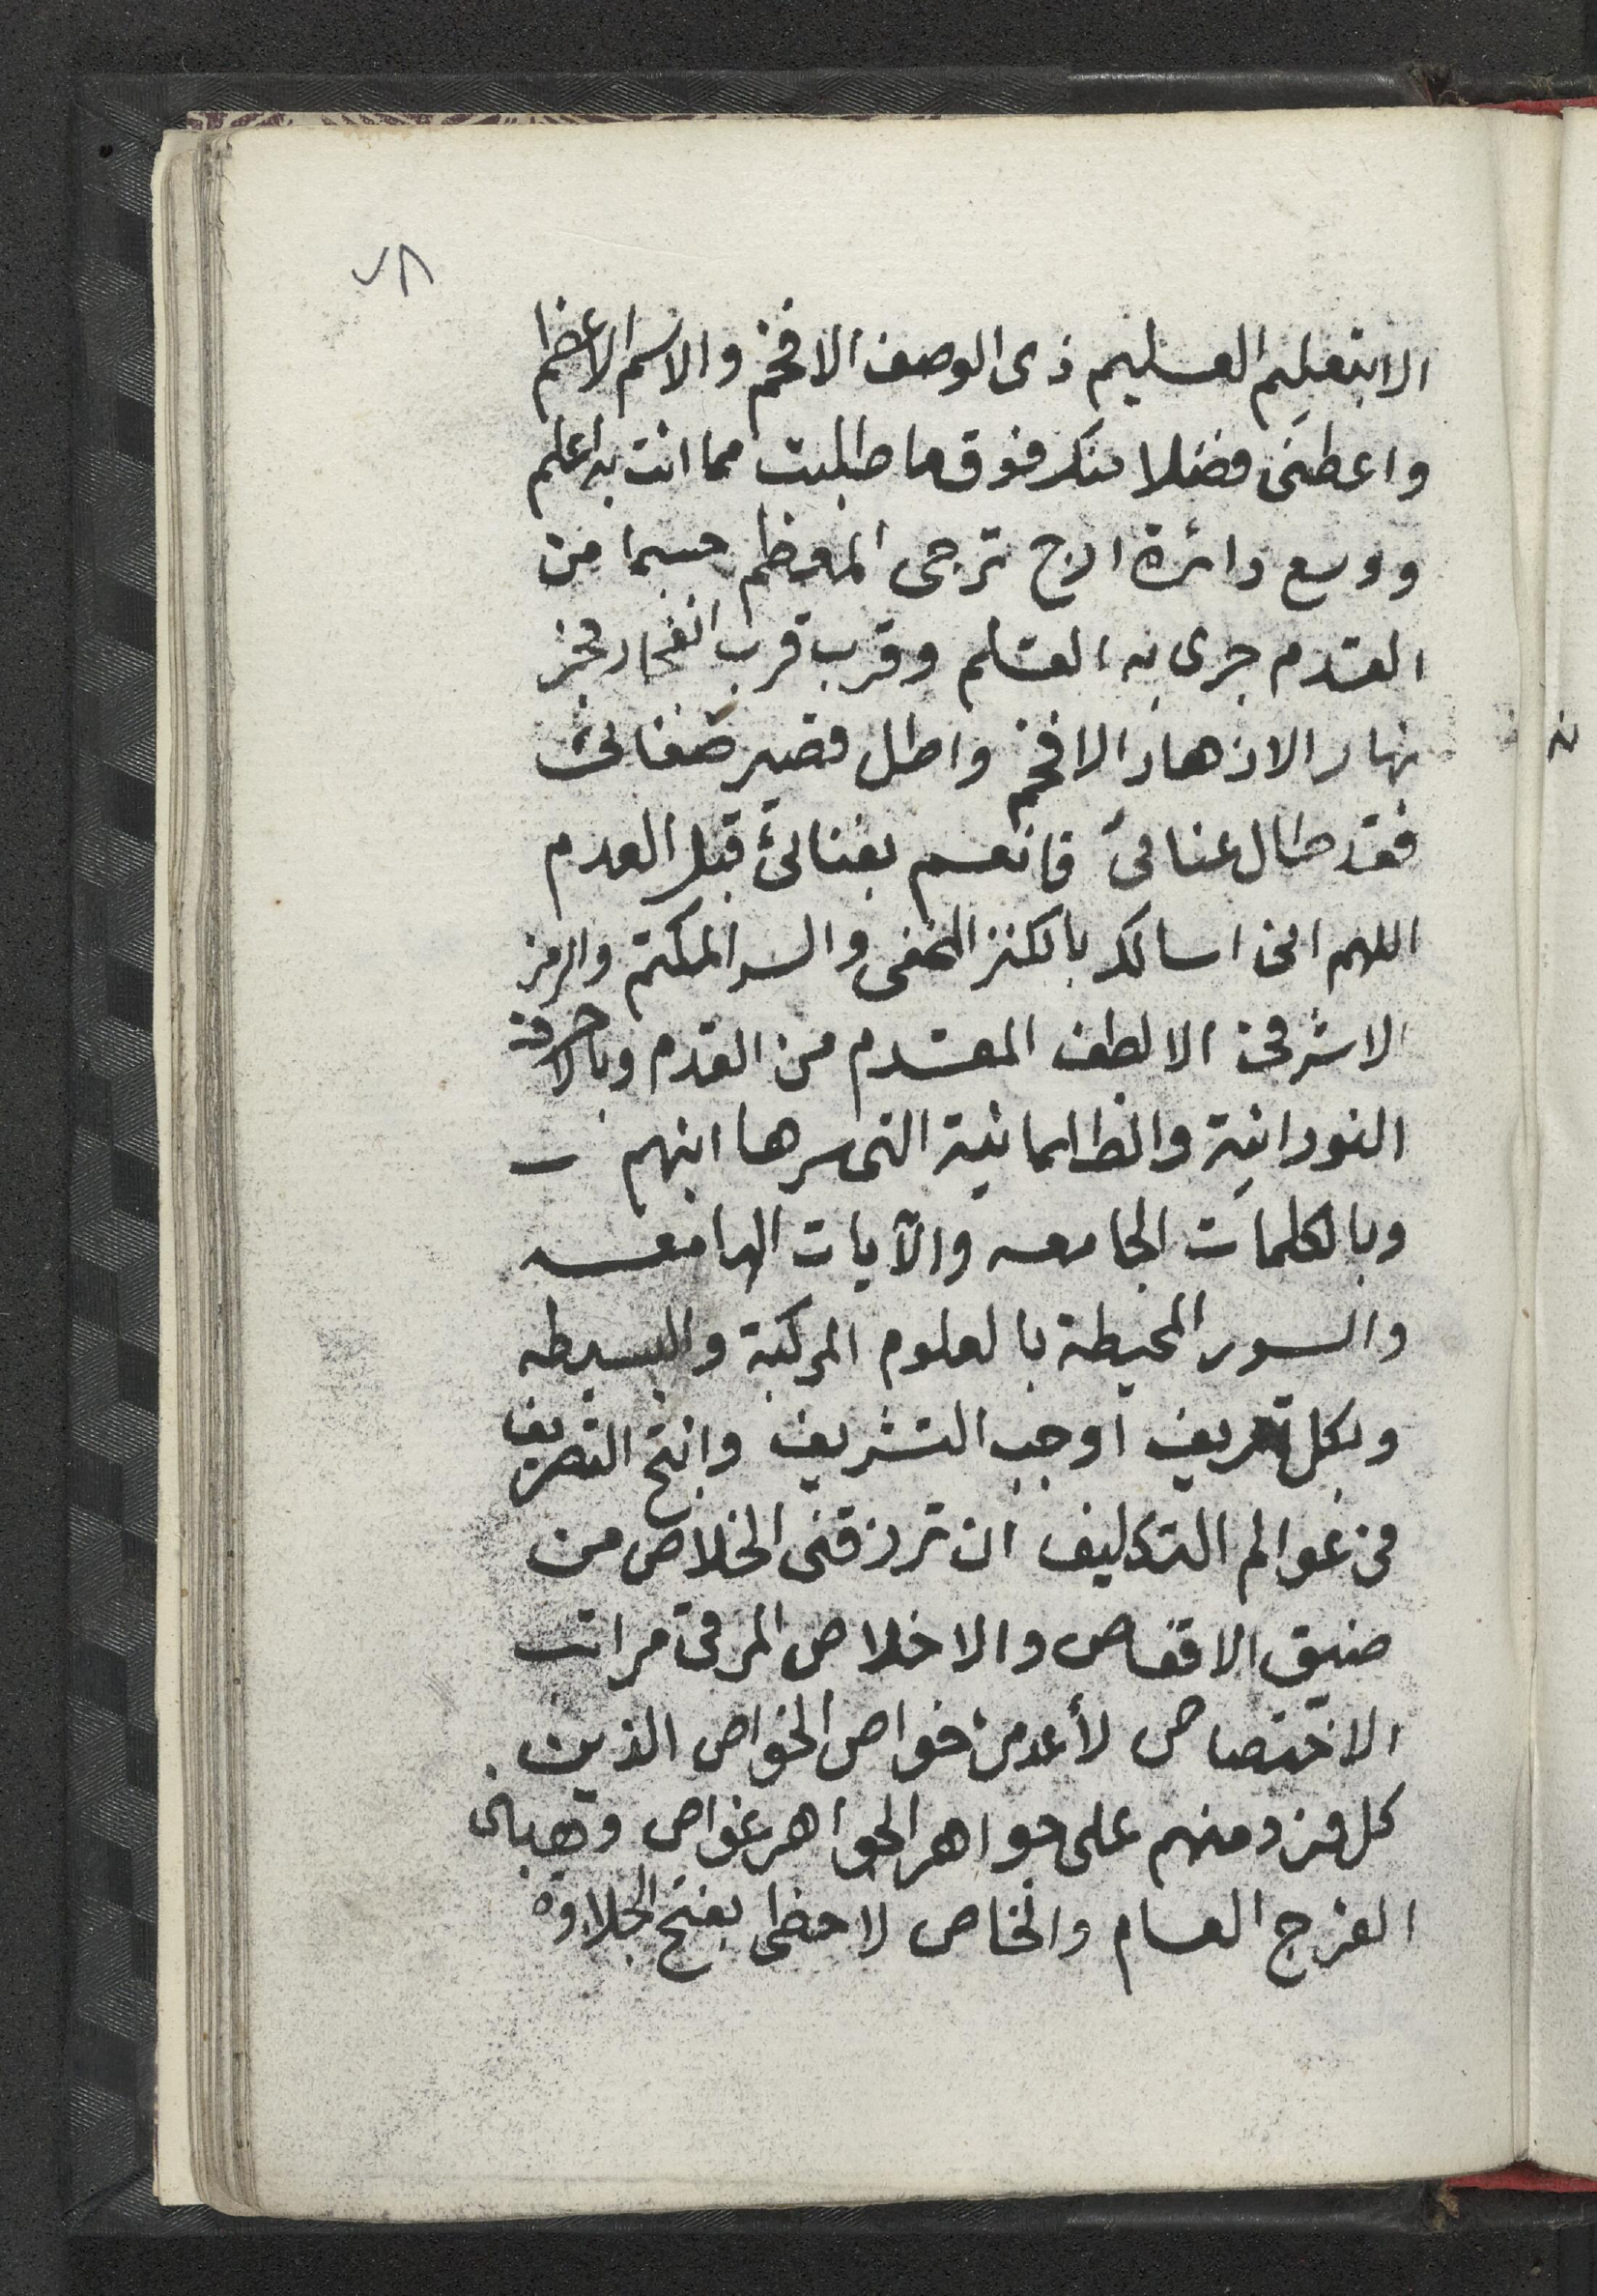 ٧٨
الا بتعليم العليم ذى الوصف الافخم والاسم الاعظم
واعطنى فضلا منك فوق ما طلبت مما انت به اعلم
ووسع دائرة ترجى المعظم حسبما من
القدم جرى به القلم وقرب قرب انفجار فجر
نهار الازهار الافخم واطل قصير
فقد طال عنائى فانعم بفنائى قبل العدم
اللهم انى اسالك بالكنز المخفى والسر المكتم والرمز
الاشرفى الالطف المقدم من القدم وبالاحرف
النورانية والظلمانية التى سرها انبهم
وبالكلمات الجامعه والآيات اللامعه
والسور المحيطة بالعلوم المركبة والبسيطه
وبكل تعريف اوجب التشريف وانتج التصريف
فى عوالم التكليف ان ترزقنى الخلاص من
ضيق الاقفاص والاخلاص المرقى مراتب
الاختصاص لأعد من خواص الخواص الذين
كل فرد منهم على جواهر الجواهر غواص وهبنى
الفرج العام والخاص لاحظى بفتح